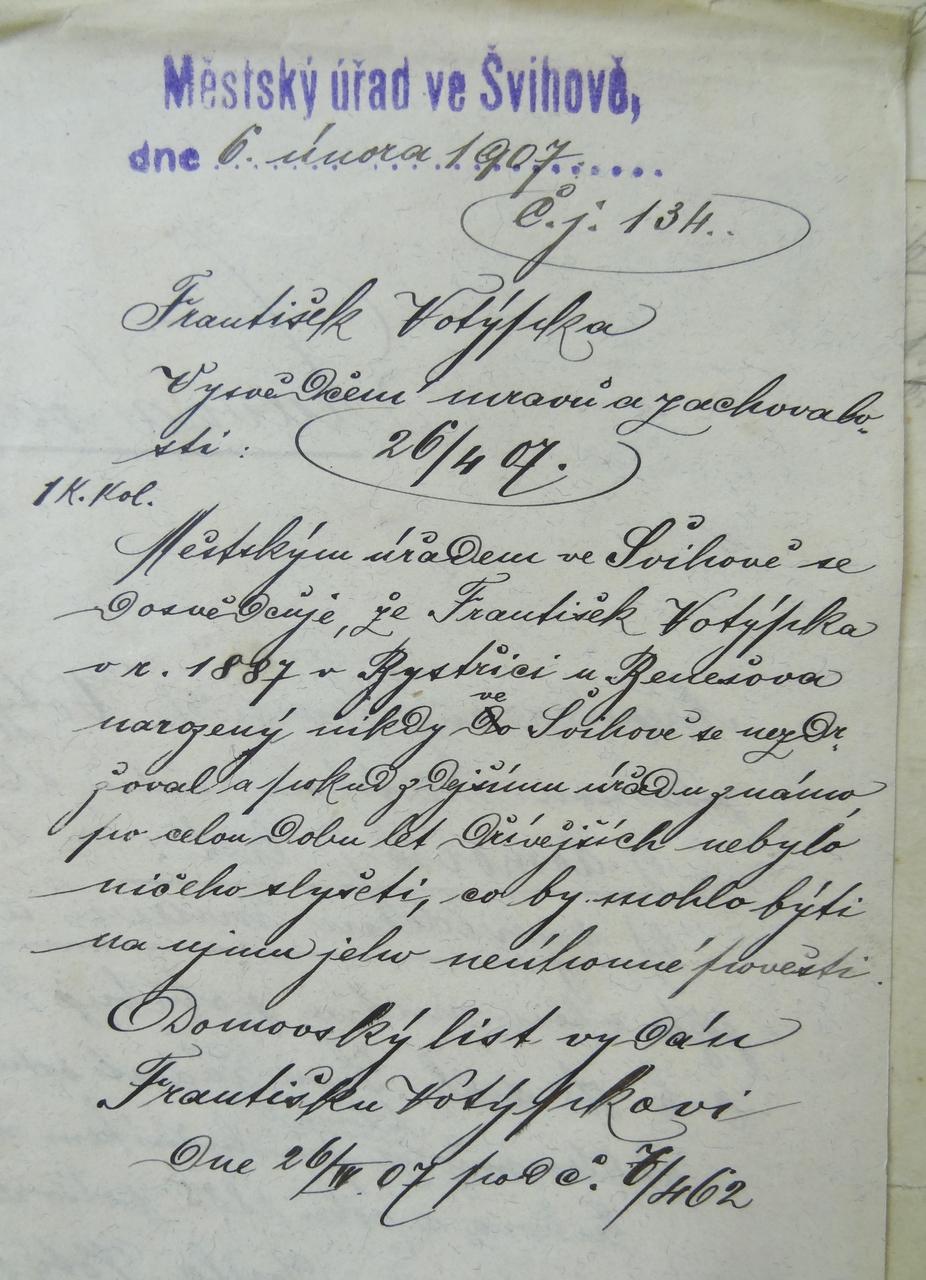 Městský úřad ve Švihově,
dne 6. února 1907.
Č.j. 134.
František Votýpka
Vysvědčení mravů a zachovalo-
sti:
26/4 07.
1 K. kol.
Městským úřadem ve Švihově se
dosvědčuje, že František Votýpka
v r. 1887 v Bystřici u Benešova
narozený nikdy ve Švihově se nezdr-
žoval a pokud zdejšímu úřadu známo
po celou dobu let dřívějších nebylo
ničeho slyšeti, co by mohlo býti
na ujmu jeho neúhonné pověsti.
Domovský list vydán
Františku Votýpkovi
Dne 26/IV. 07 pod č. /462